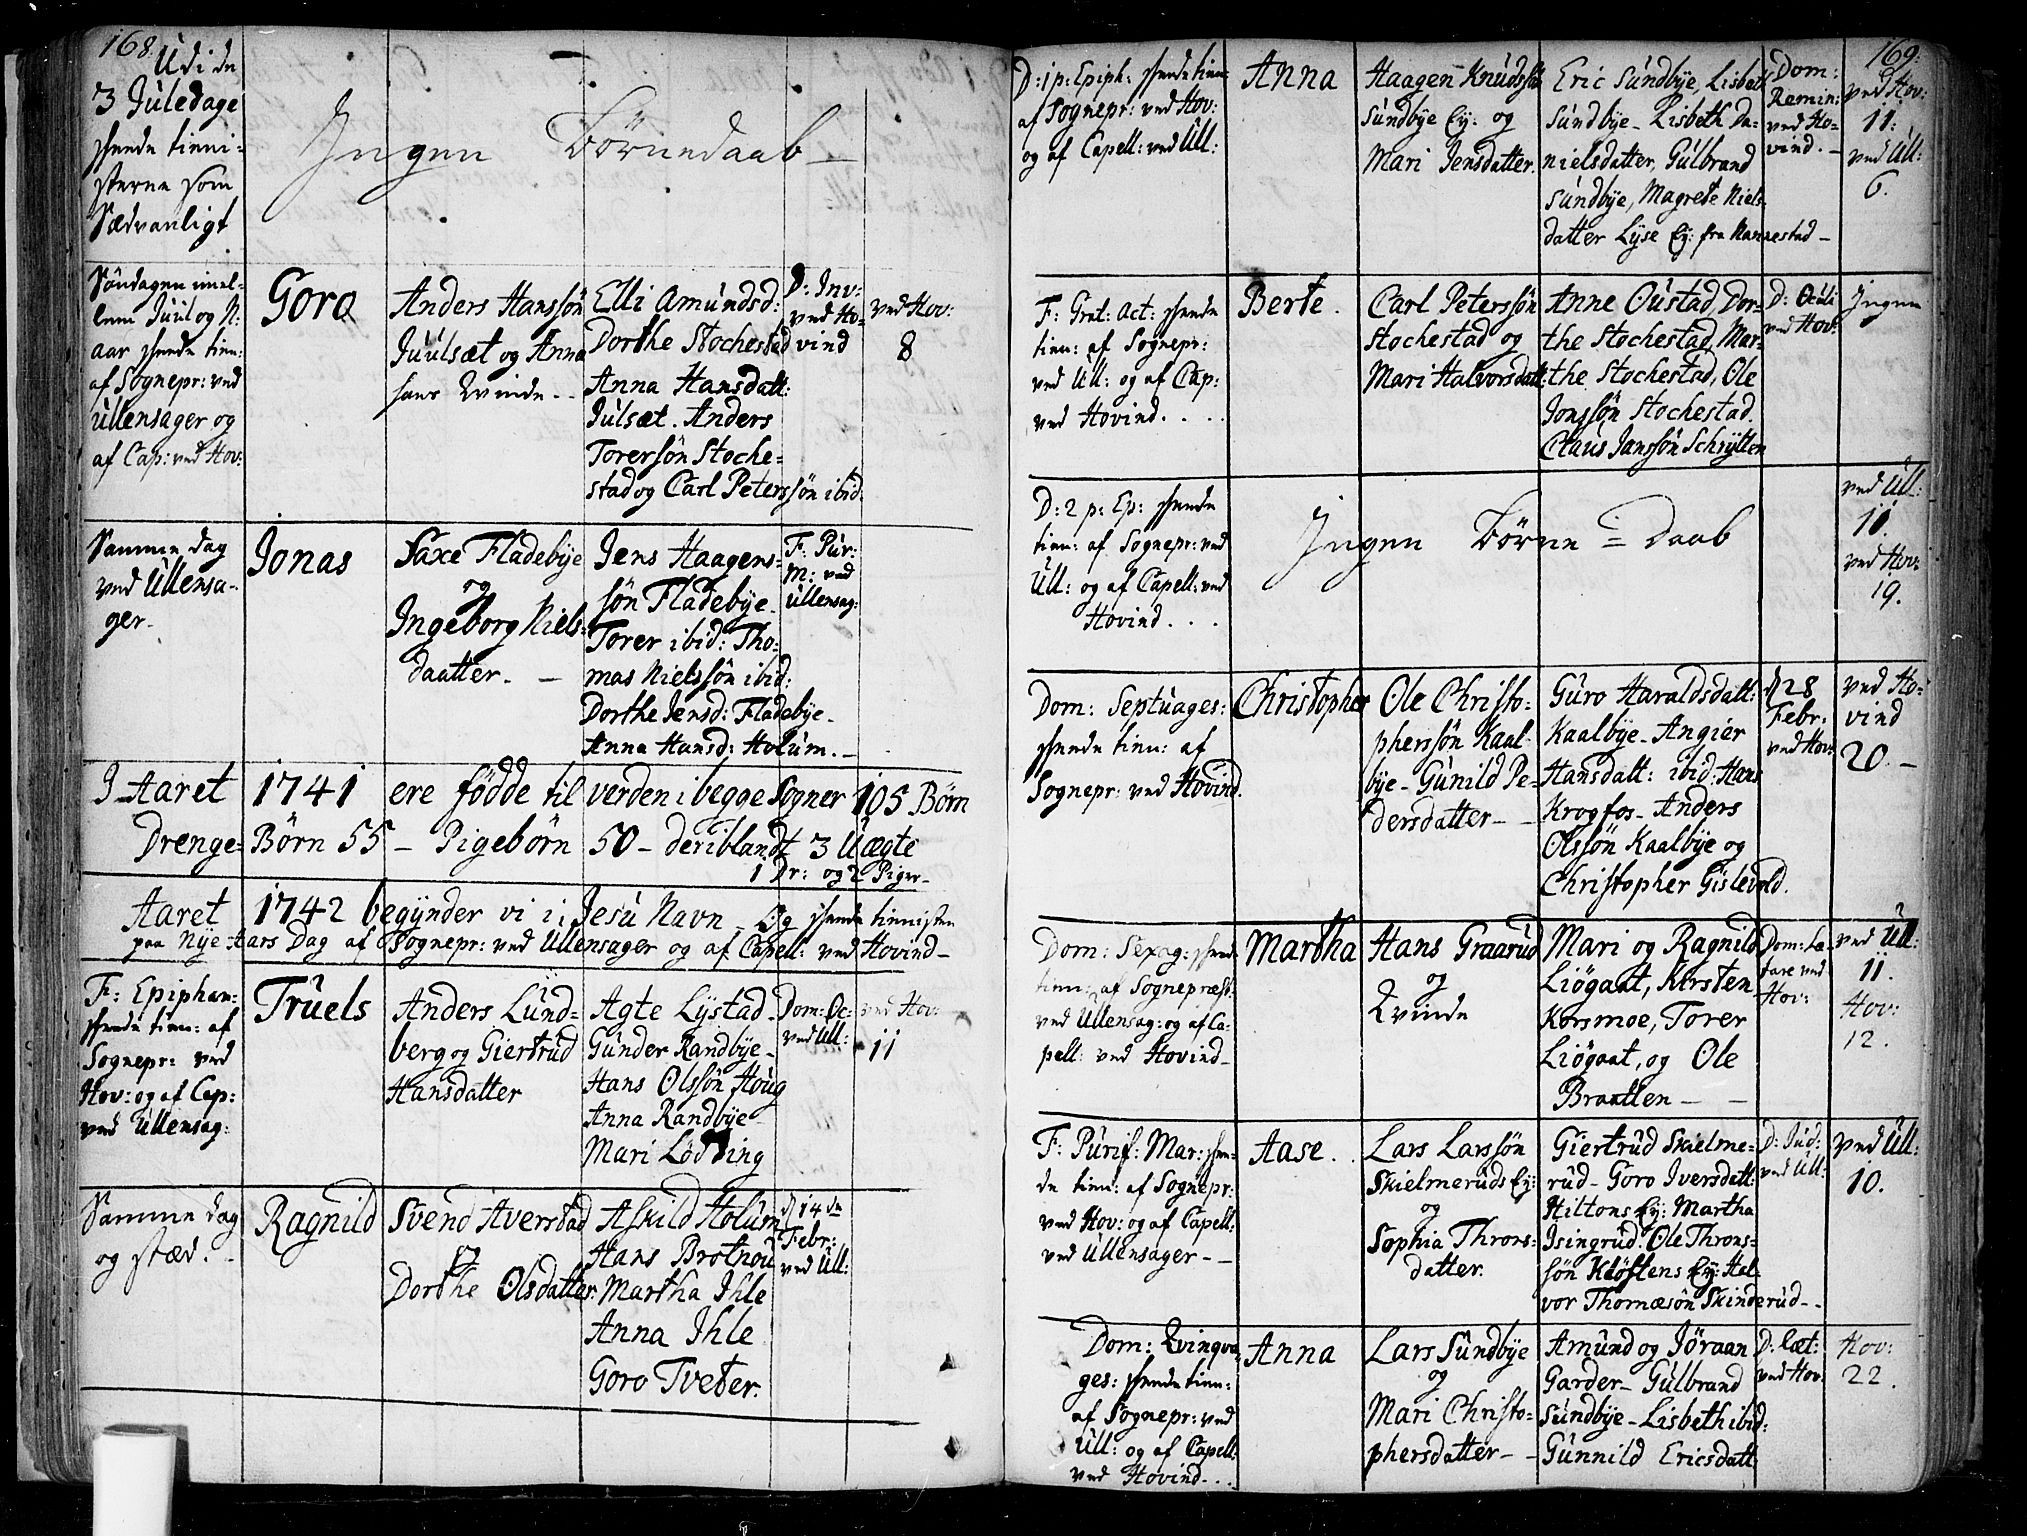 168.
Udi de
3 Juledage
skeede tienni-
sterne som
Sædvanligt
Ingen Börnedaab
Söndagen imel-
lem Juul og N:
aar skeede tien:
af Sognepr: ved
Ullensager og
af Cap: ved Hov:
Goro
Anders Hanssön
Juulsæt og Anna
hans Qvinde
Elli Amundsd:
Dorthe Stochestad
Anna Hansdatt:
Julsæt. Anders
Torersön Stoche-
stad og Carl Peterssön ibid:
D: Inv:
ved Ho-
vind
ved Hov:
8
Samme dag
ved Ullensa-
ger
Jonas
Saxe Fladebye
og
Ingeborg Niels-
daatter
Jens Haagens-
sön Fladebye
Torer ibid: Tho-
mas Nielssön ibid:
Dorthe Jensd: Fladebye
Anna Hansd: Holum.
F: Pur:
M: ved
Ullensag:
I Aaret 1741 ere födde til verden i begge Sogner 105 Börn
Drenge-Börn 55 - Pigebörn 50 - deriblandt 3 Uægte
1 Dr: og 2 Piger
Aaret 1742 begynder vi i Jesu Navn Og skeede tienisten
paa Nye Aars Dag af Sognepr: ved Ullensager og af Capell: ved Hovind
F: Epiphan:
skeede tien: af
Sognepr: ved
Hov: og af Cap:
ved Ullensag:
Truels
Anders Lund-
berg og Giertrud
Hansdatter
Agte Lystad
Gunder Randbye
Hans Olssön Houg
Anna Randbye
Mari Lödding
Dom: Oc:
ved Ull:
ved Hov:
11
Samme dag
og stæd.
Ragnild
Svend Averstad
og
Dorthe Olsdatter
Askild Holum
Hans Brotnou
Martha Ihle
Anna Ihle
Goro Tveter.
d 14de
Febr:
ved Ull:
169.
D: 1 p: Epiph: skeede tien:
af Sognepr: ved Hov:
og af Capell: ved Ull:
Anna
Haagen Knudssön
Sundbye Ey: og
Mari Jensdatter.
Eric Sundbye, Lisbeth
Sundbye - Lisbeth Da-
nielsdatter, Gulbrand
Sundbye, Magrete Niels-
datter Lyse Ey: fra Nannestad
Dom:
Remin:
ved Ho-
vind.
ved Hov:
11:
ved Ull:
6.
F: Grat: Act: skeede
tien: af Sognepr:
ved Ull: og af Cap:
ved Hovind.
Berte.
Carl Peterssön
Stochestad og
Mari Halvorsdatt:
Anne Oustad, Dor-
the Stochestad, Mar-
the Stochestad, Ole
Jonssön Stochestad.
Claus Janssön Schrytten
D: Oculi
ved Hov:
Ingen
D: 2 p: Ep: skeede
tien: af Sognepr: ved
Ull: og af Capell: ved
Hovind
Ingen Börne = Daab
ved Ull:
11.
ved Hov:
19.
Dom: Septuages:
skeede tien: af
Sognepr: ved Hovind.
Christopher
Ole Christo-
pherssön Kaal-
bye - Gunild Pe-
dersdatter
Guro Haraldsdatt:
Kaalbye - Angier
Hansdatt: ibid: Hans
Krogfos - Anders
Olssön Kaalbye og
Christopher Gislevold.
d 28
Febr:
ved Hov:
ved Ho-
vind
20.
Dom: Sexag: skeede
tien: af Sognepræst:
ved Ullensag: og af Ca-
pell: ved Hovind
Martha
Hans Graarud
og
Qvinde
Mari og Ragnild
Liögaat, Kirsten
Korsmoe, Torer
Liögaat, og Ole
Braatten
Dom: Læ-
tare ved
Hov:
ved Ull:
11.
Hov:
12.
F: Purif: Mar: skee-
de tien: af Sognepr:
ved Hov: og af Capell:
ved Ullensager
Aase.
Lars Larssön
Skielmeruds Ey:
og
Sophia Throns-
datter.
Giertrud Skielme-
rud - Goro Iversdatt:
Hiltons Ey: Martha
Isingrud. Ole Throns-
sön Klöftens Ey: Hal-
vor Thomæsön Skinderud
D: Jud:
ved Ull:
ved Ull:
10.
Dom: Qvinqva-
ges: skeede tien:
af Sognepr: ved
Ull: og af Capell:
ved Hovind
Anna
Lars Sundbye
og
Mari Christo-
phersdatter
Amund og Jöraan
Garder - Gulbrand
Sundbye - Lisbeth ibid:
Gunnild Ericsdatt:
D: Læt:
ved Hov:
Hov:
22.